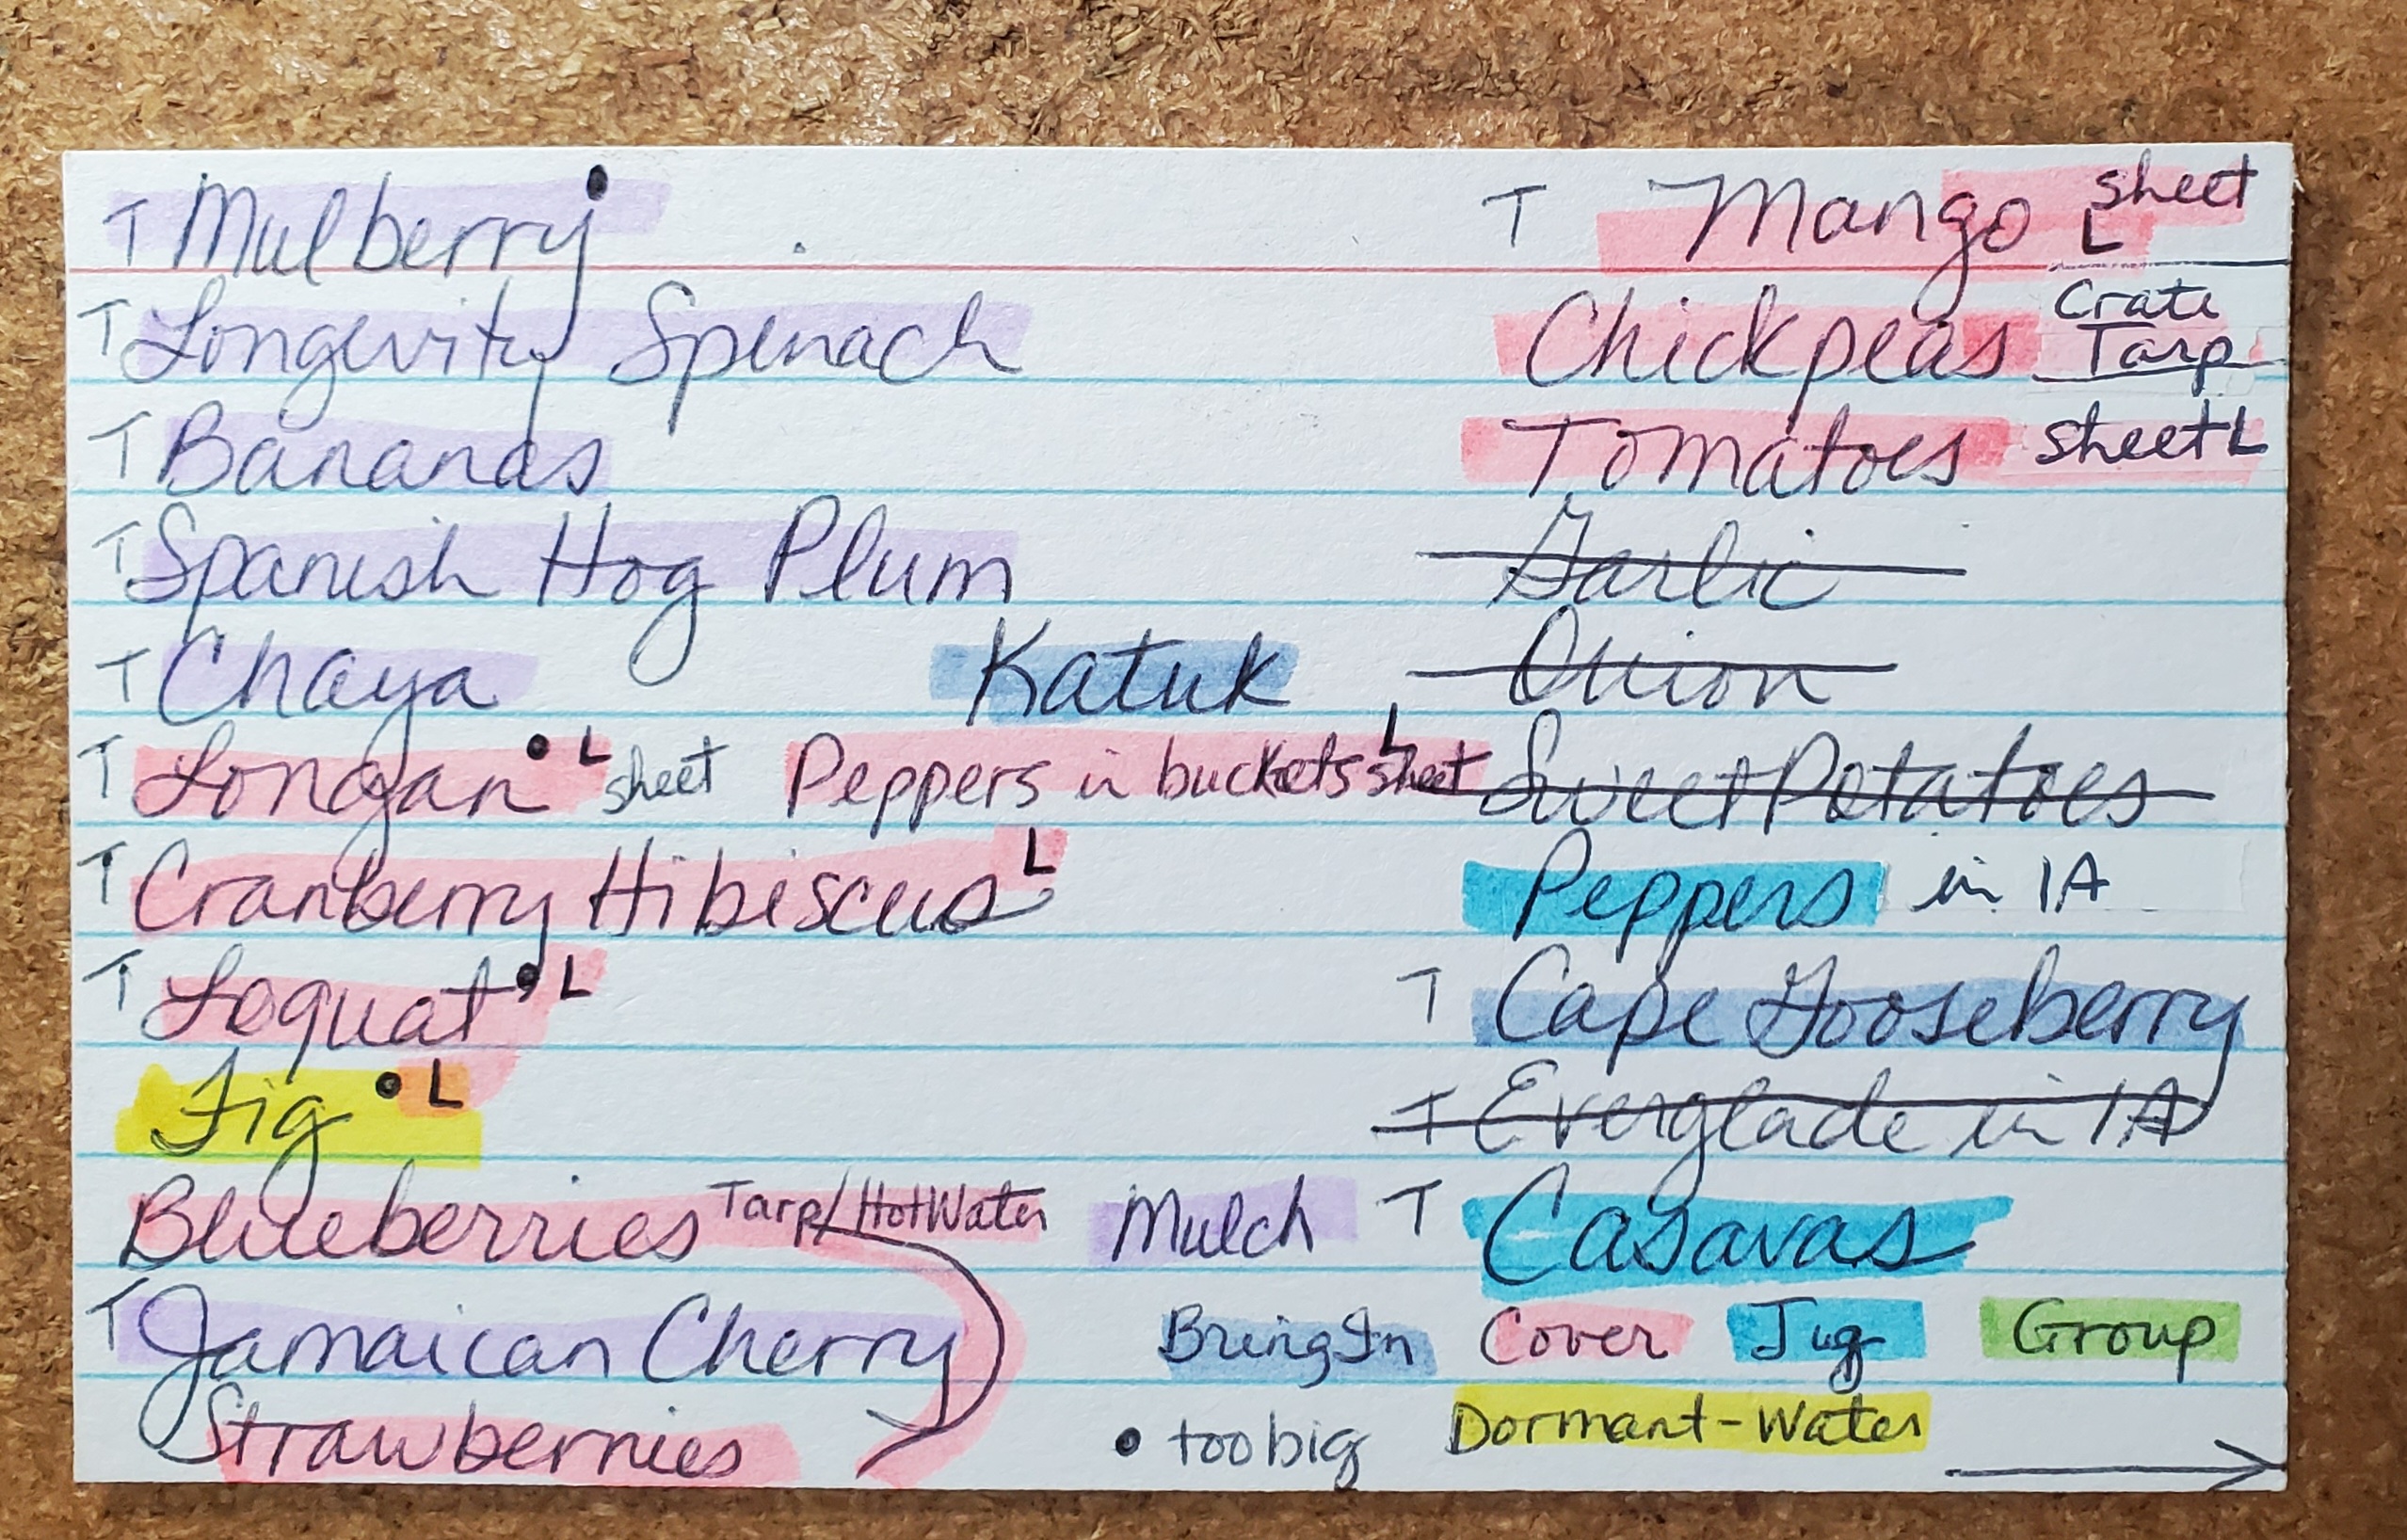 T Mulberry •
T Longevity Spinach
T Bananas
T Spanish Hog Plum
T Chaya
Katuk
T Longan • L sheet
Peppers in buckets L sheet
T Cranberry Hibiscus L
T Loquat • L
Fig • L
Blueberries Tarp/HotWater
T Jamaican Cherry
Strawberries
T Mango sheet L
Chickpeas Crate Tarp
Tomatoes sheet L
Garlic
Onion
Sweet Potatoes
Peppers in 1A
T Cape Gooseberry
T Everglade in 1A
T Casavas
Mulch
Bring In Cover Jug Group
• too big Dormant-Water
→